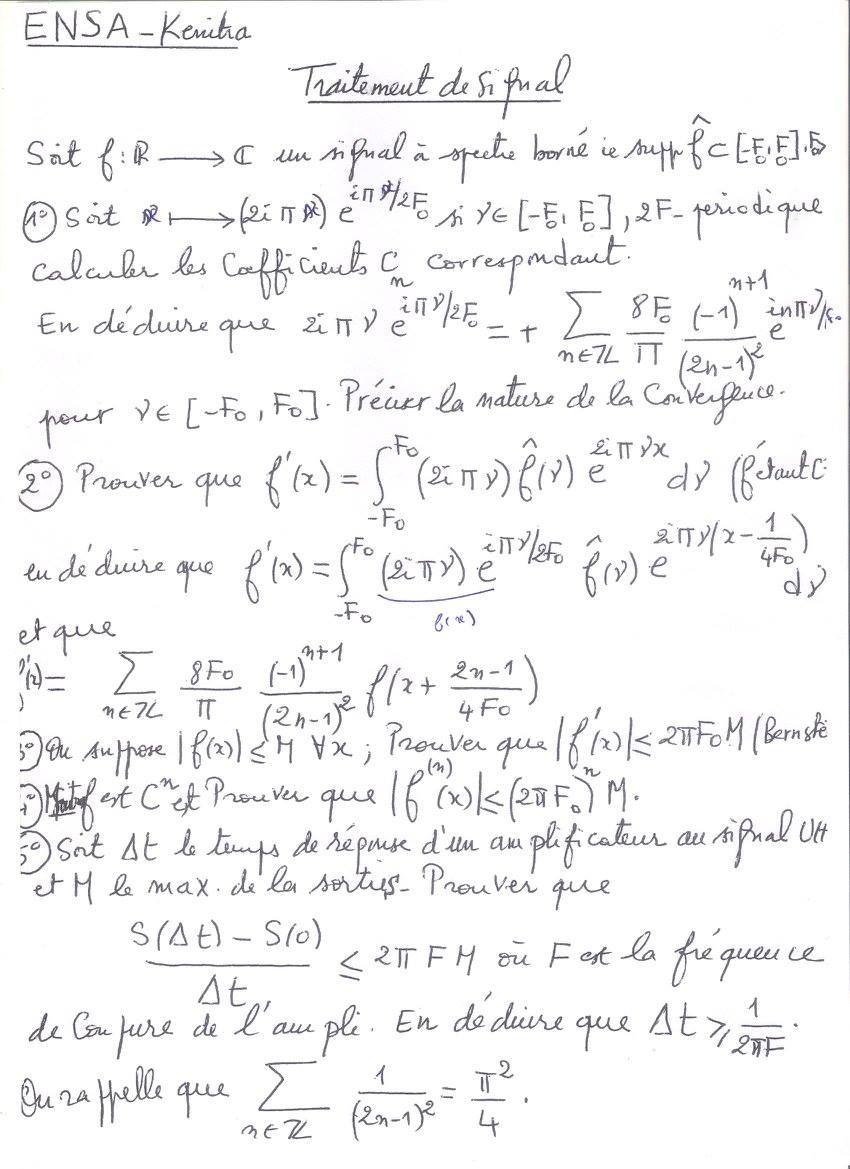 ENSA - Kenitra
Traitement de signal
Soit f : ℝ ⟶ ℂ un signal à spectre borné ie supp f̂ ⊂ [-F₀, F₀], F₀>
1°) Soit ⟼ (2iπ ) e^{iπ /2F₀} si ν ∈ [-F₀, F₀], 2F- periodique
calculer les Coefficients C_n correspondant.
En déduire que 2iπν e^{iπν/2F₀} = + ∑_{n∈ℤ} 8F₀/π (-1)^{n+1}/(2n-1)² e^{inπν/F₀}
pour ν ∈ [-F₀, F₀]. Préciser la nature de la Convergence.
2°) Prouver que f'(x) = ∫_{-F₀}^{F₀} (2iπν) f̂(ν) e^{2iπνx} dν (f étant C
en déduire que f'(x) = ∫_{-F₀}^{F₀} (2iπν) e^{iπν/2F₀} f̂(ν) e^{2iπν(x - 1/4F₀)} dν
et que
'(x) = ∑_{n∈ℤ} 8F₀/π (-1)^{n+1}/(2n-1)² f(x + (2n-1)/4F₀)
3°) On suppose |f(x)| ≤ M ∀x ; Prouver que |f'(x)| ≤ 2πF₀M (Bernste
f est Cⁿ et Prouver que |f^{(n)}(x)| ≤ (2πF₀)ⁿ M.
5°) Soit Δt le temps de réponse d'un amplificateur au signal U
et M le max. de la sortie - Prouver que
(S(Δt) - S(0))/Δt ≤ 2πFM où F est la fréquence
de Coupure de l'ampli. En déduire que Δt ≥ 1/2πF.
On rappelle que ∑_{n∈ℤ} 1/(2n-1)² = π²/4.